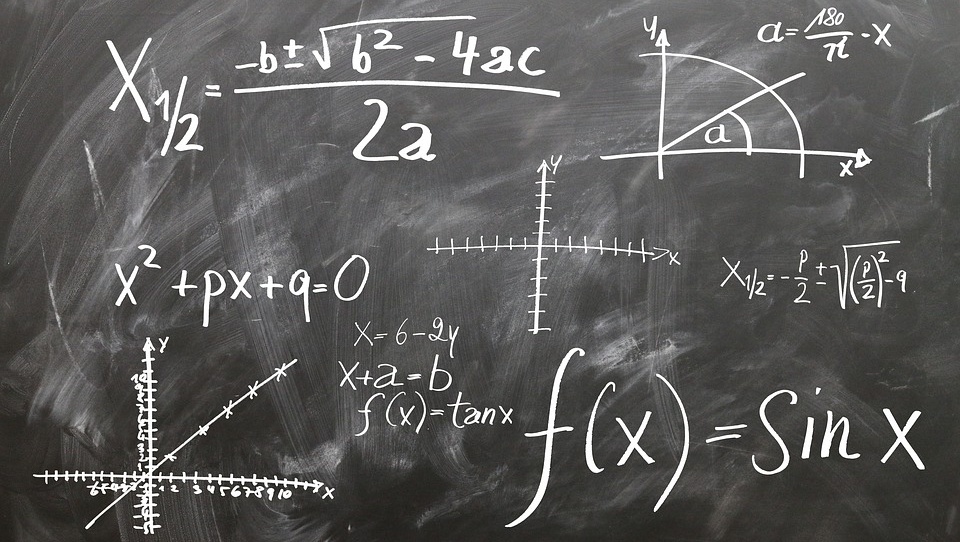 X₁/₂ = (-b ± √(b² - 4ac)) / 2a
y
a = 180/π · x
a
x
y
x
x² + px + q = 0
X₁/₂ = -p/2 ± √((p/2)² - q)
x = 6 - 2y
x + a = b
f(x) = tan x
f(x) = Sin x
y
1 2 3 4 5 6 7 8 9 10
x